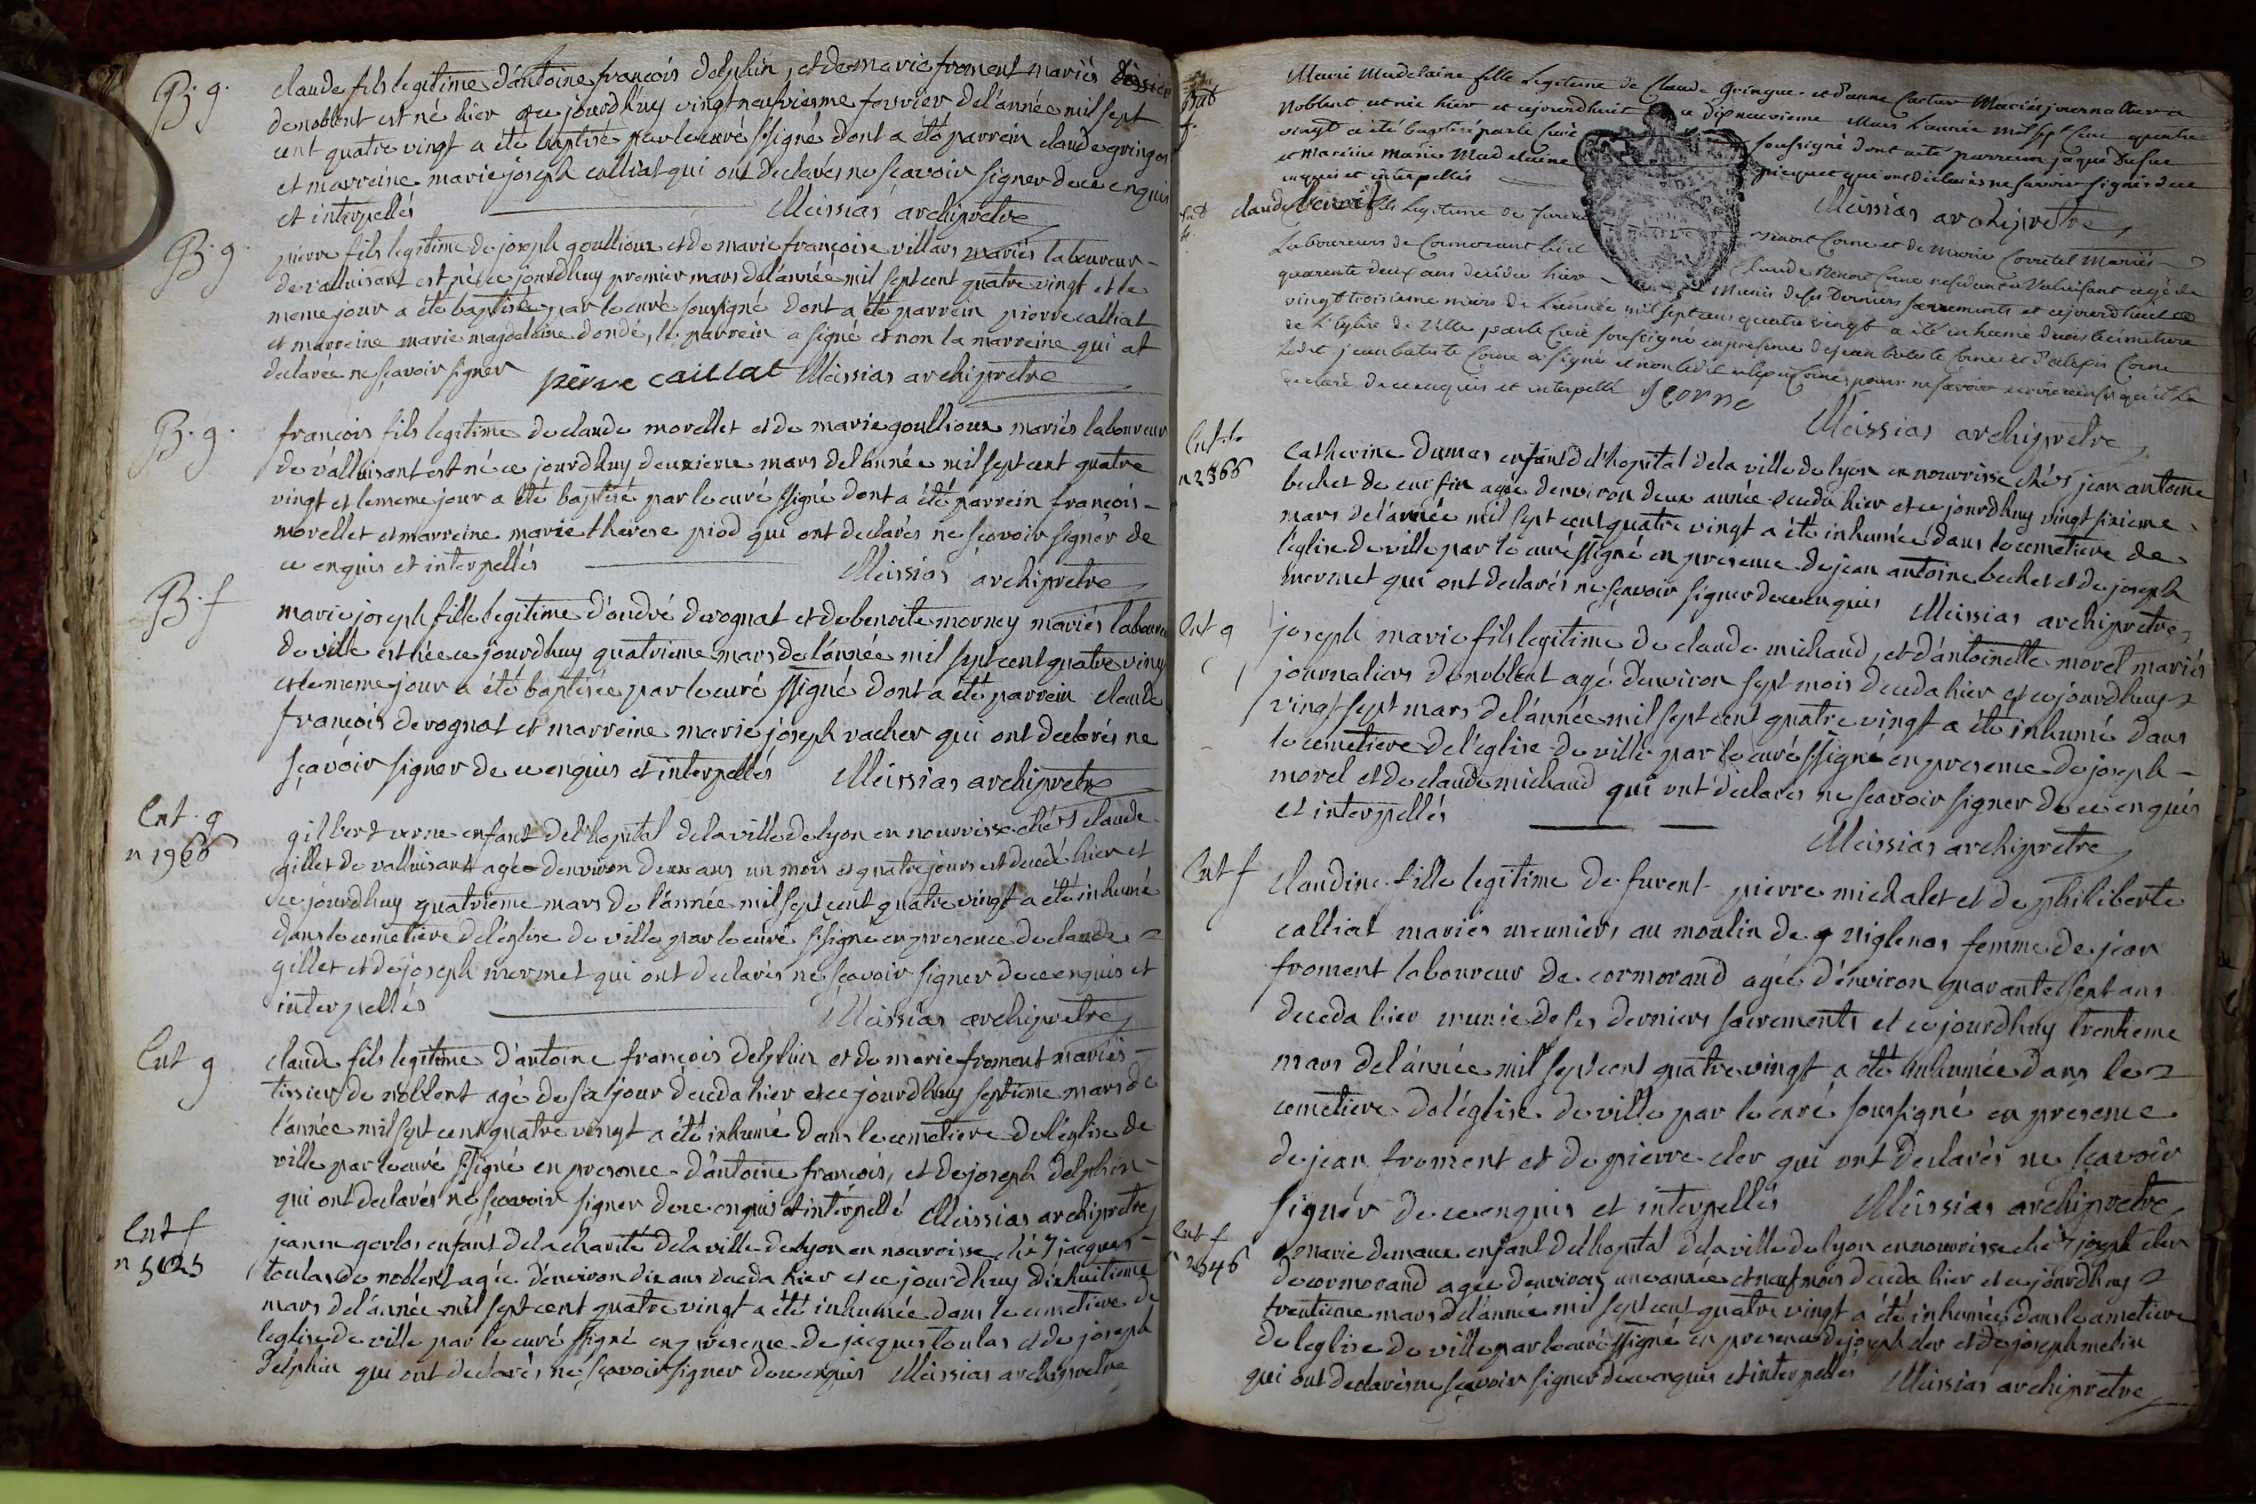 B. g. claude fils legitime d'antoine françois delphin, et de marie froment mariés tissier
de noblent est né hier et ce jourdhuy vingt neufvieme fevrier de l'année mil sept
cent quatre vingt a été baptisé par le curé ssigné dont a été parrein claude gringo
et marreine marie joseph calliat qui ont declarés ne sçavoir signer de ce enquis
et interpellés Meissias archipretre
B. g. pierre fils legitime de joseph goullioux et de marie françoise villars mariés laboureur
de valluisant est né ce jourdhuy premier mars de l'année mil sept cent quatre vingt et le
meme jour a été baptisé par le curé soussigné dont a été parrein pierre calliat
et marreine marie magdelaine dondé, le parrein a signé et non la marreine qui at
declarée ne sçavoir signer pierre caillat Meissias archipretre
B. g. françois fils legitime de claude morellet et de marie goullioux mariés laboureur
de valluisant est né ce jourdhuy deuxieme mars de l'année mil sept cent quatre
vingt et le meme jour a été baptisé par le curé ssigné dont a été parrein françois
morellet et marreine marie therese piod qui ont declarés ne sçavoir signer de
ce enquis et interpellés Meissias archipretre
B. f marie joseph fille legitime d'andré derognat et de benoite morney mariés laboureu
de ville est née ce jourdhuy quatrieme mars de l'année mil sept cent quatre ving
et le meme jour a été baptisée par le curé ssigné dont a été parrein claude
françois derognat et marreine marie joseph vacher qui ont declarés ne
sçavoir signer de ce enquis et interpellés Meissias archipretre
Ent. g gilbert verne enfant de l'hopital de la ville de lyon en nourrisse chés claude
n 1966 gillet de valluisant agé denviron deux ans un mois et quatre jours est decedé hier et
ce jourdhuy quatrieme mars de l'année mil sept cent quatre vingt a été inhumé
dans le cemetiere de l'église de ville par le curé ssigné en presence de claude
gillet et de joseph mermet qui ont declarés ne sçavoir signer de ce enquis et
interpellés Meissias archipretre
Ent g claude fils legitime d'antoine françois delphin et de marie froment mariés
tissier de noblent agé de six jour deceda hier et ce jourdhuy septieme mars de
l'année mil sept cent quatre vingt a été inhumé dans le cemetiere de l'église de
ville par le curé ssigné en presence d'antoine françois, et de joseph delphin
qui ont declarés ne sçavoir signer de ce enquis et interpellé Meissias archipretre
Ent f jeanne gerlos enfant de la charité de la ville de lyon en nourrisse chés jacques
n 5025 toulas de noblent agée d'environ dix ans deceda hier et ce jourdhuy dixhuitieme
mars de l'année mil sept cent quatre vingt a été inhumée dans le cemetiere de
l'église de ville par le curé ssigné en presence de jacques toulas et de joseph
delphin qui ont declarés ne sçavoir signer de ce enquis Meissias archipretre
Bat f. Marie Madelaine fille legitime de Claude Gringue et d'anne Mariés journallier a
Noblent est née hier et cejourdhuit dixneuvieme Mars L'année mil sept cent quatre
vingt a été baptisé par le Curé soussigné dont a été parrein jaque
et mareine Marie Madelaine qui ont declarés ne savoir signés de ce
enquis et interpellés Meissias archipretre
claude benoit fils legitime de benoit Corne et de Marie Corretel Mariés
Laboureurs de Cormorant Claude Benoit Corne residant a Valuisant agé de
quarente deux ans deceda hier Munis de ses Derniers sacrements et cejourdhuit
vingt troisieme mars de L'année mil sept cent quatre vingt a été inhumé dans le cimetiere
de L'Eglise de Ville par le Curé soussigné en presence de jean batiste Corne et d'alexis Corne
Ledit jean batiste Corne a signé et non ledit alexis Corne pour ne savoir
declaré de ce enquis et interpellé J Corne
Meissias archipretre
Ent. f. Catherine dumas enfant de l'hopital de la ville de lyon en nourrisse chés jean antoine
n 2366 bechet de agée denviron deux année deceda hier et ce jourdhuy vingt sixieme
mars de l'année mil sept cent quatre vingt a été inhumée dans le cemetiere de
l'église de ville par le curé ssigné en presence de jean antoine bechet et de joseph
mermet qui ont declarés ne sçavoir signer de ce enquis Meissias archipretre
Ent g joseph marie fils legitime de claude michaud, et d'antoinette morel mariés
journaliers de noblent agé d'environ sept mois deceda hier et ce jourdhuy
vingt sept mars de l'année mil sept cent quatre vingt a été inhumé dans
le cemetiere de l'église de ville par le curé ssigné en presence de joseph
morel et de claude michaud qui ont declarés ne sçavoir signer de ce enquis
et interpellés
Meissias archipretre
Ent f claudine fille legitime de furent pierre michalet et de philiberte
calliat mariés meuniers au moulin de femme de jean
froment laboureur de cormorand agée d'environ quarante sept ans
deceda hier munie de ses derniers sacrements et ce jourdhuy trentieme
mars de l'année mil sept cent quatre vingt a été inhumée dans le
cemetiere de l'église de ville par le curé soussigné en presence
de jean froment et de pierre cler qui ont declarés ne sçavoir
signer de ce enquis et interpellés Meissias archipretre
Ent f marie demaux enfant de l'hopital de la ville de lyon en nourrisse chés joseph cler
n 2346 de cormorand agée denviron une année et neuf mois deceda hier et ce jourdhuy
trentieme mars de l'année mil sept cent quatre vingt a été inhumée dans le cemetiere
de leglise de ville par le curé ssigné en presence de joseph cler et de joseph melin
qui ont declarés ne sçavoir signer de ce enquis et interpellés Meissias archipretre